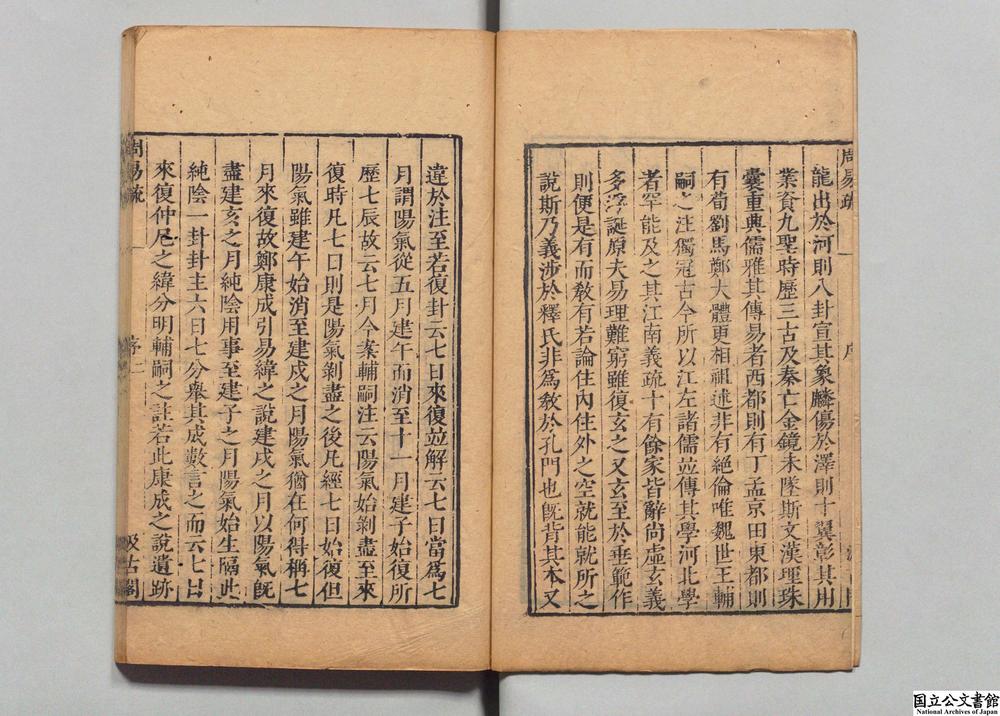 周易疏 一 序
龍出於河則八卦宣其象麟傷於澤則十翼彰其用
業資九聖時歷三古及秦亡金鏡未墜斯文漢理珠
囊重興儒雅其傳易者西都則有丁孟京田東都則
有荀劉馬鄭大體更相祖述非有絕倫唯魏世王輔
嗣之注獨冠古今所以江左諸儒竝傳其學河北學
者罕能及之其江南義疏十有餘家皆辭尚虛玄義
多浮誕原夫易理難窮雖復玄之又玄至於垂範作
則便是有而敎有若論住內住外之空就能就所之
說斯乃義涉於釋氏非爲敎於孔門也旣背其本又
違於注至若復卦云七日來復竝解云七日當爲七
月謂陽氣從五月建午而消至十一月建子始復所
歷七辰故云七月今案輔嗣注云陽氣始剝盡至來
復時凡七日則是陽氣剝盡之後凡經七日始復但
陽氣雖建午始消至建戍之月陽氣猶在何得稱七
月來復故鄭康成引易緯之說建戍之月以陽氣旣
盡建亥之月純陰用事至建子之月陽氣始生隔此
純陰一卦卦主六日七分舉其成數言之而云七日
來復仲尼之緯分明輔嗣之註若此康成之說遺跡
周易疏 一 序二 汲古閣
国立公文書館
National Archives of Japan